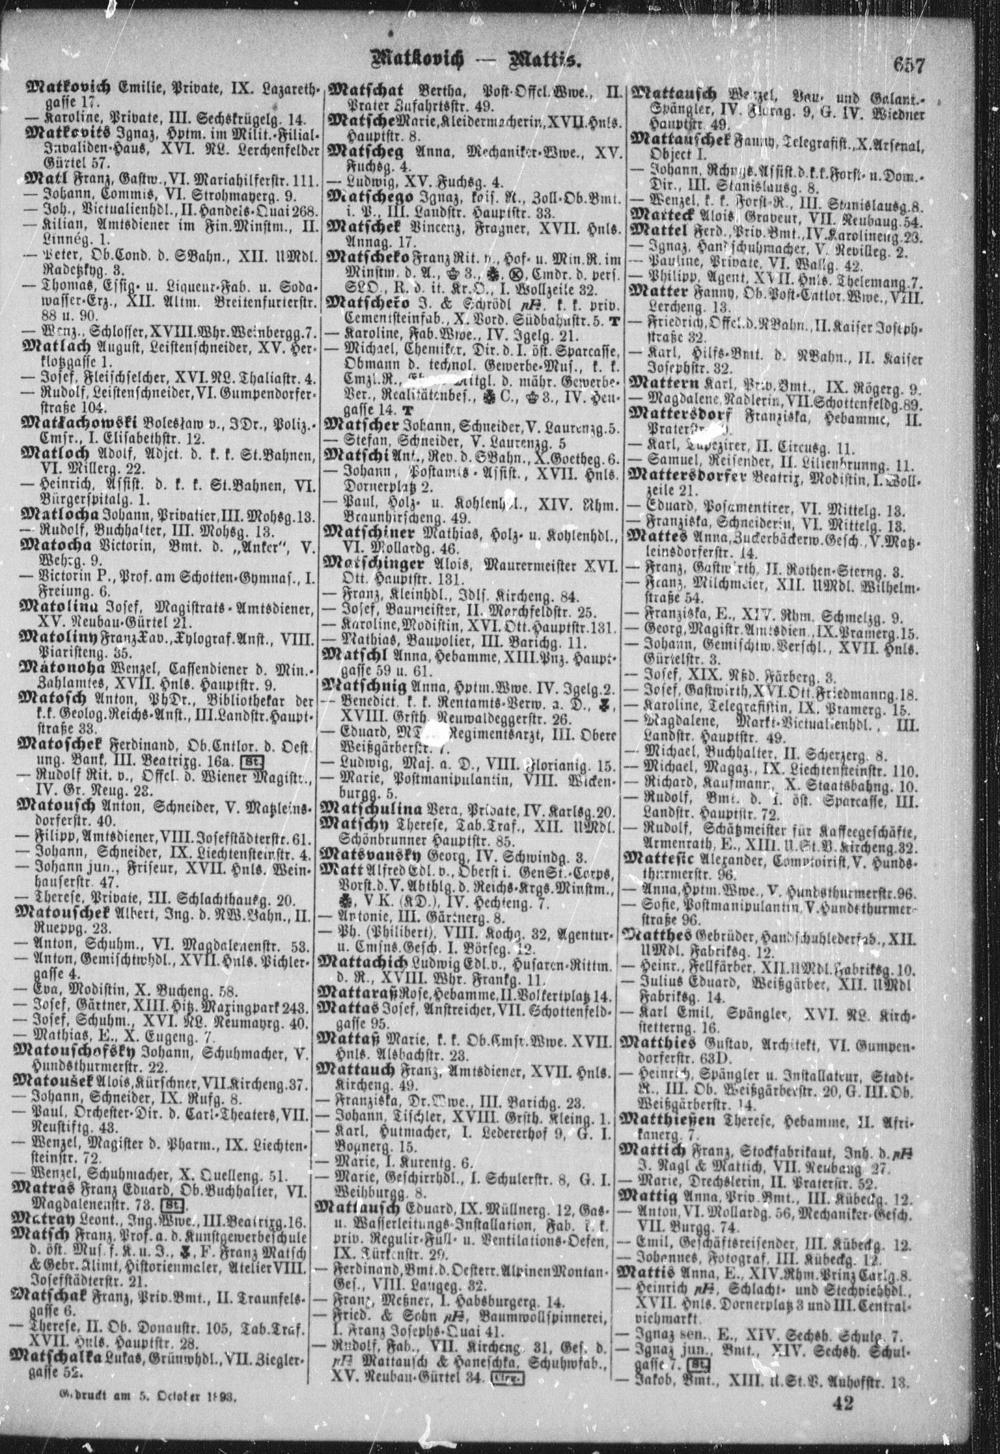 Matkovich — Mattis.
657
Matkovich Emilie, Private, IX. Lazareth-
gasse 17.
— Karoline, Private, III. Sechskrügelg. 14.
Matkovits Ignaz, Hptm. im Milit.-Filial-
Invaliden-Haus, XVI. NL. Lerchenfelder
Gürtel 57.
Matl Franz, Gastw., VI. Mariahilferstr. 111.
— Johann, Commis, VI. Strohmayerg. 9.
— Joh., Victualienhdl., II. Handels-Quai 268.
— Kilian, Amtsdiener im Fin.Minstm., II.
Linnég. 1.
— Peter, Ob.Cond. d. SBahn., XII. UMdl.
Radetzkyg. 3.
— Thomas, Essig- u. Liqueur-Fab. u. Soda-
wasser-Erz., XII. Altm. Breitenfurterstr.
88 u. 90.
— Wenz., Schlosser, XVIII. Whr. Weinbergg. 7.
Matlach August, Leistenschneider, XV. Her-
klotzgasse 1.
— Josef, Fleischselcher, XVI. NL. Thaliastr. 4.
— Rudolf, Leistenschneider, VI. Gumpendorfer-
straße 104.
Matlachowski Boleslaw v., JDr., Poliz.-
Cmsr., I. Elisabethstr. 12.
Matloch Adolf, Adjct. d. k. k. St.Bahnen,
VI. Millerg. 22.
— Heinrich, Assist. d. k. k. St.Bahnen, VI.
Bürgerspitalg. 1.
Matlocha Johann, Privatier, III. Mohsg. 13.
— Rudolf, Buchhalter, III. Mohsg. 13.
Matocha Victorin, Bmt. d. „Anker“, V.
Wehrg. 9.
— Victorin P., Prof. am Schotten-Gymnas., I.
Freiung. 6.
Matolin Josef, Magistrats-Amtsdiener,
XV. Neubau-Gürtel 21.
Matoliny Franz Xav., Xylograf. Anst., VIII.
Piaristeng. 35.
Mátonoha Wenzel, Cassendiener d. Min.-
Zahlamtes, XVII. Hnls. Hauptstr. 9.
Matosch Anton, PhDr., Bibliothekar der
k.k. Geolog. Reichs-Anst., III. Landstr. Haupt-
straße 33.
Matoschek Ferdinand, Ob.Cntlor. d. Oest.
ung. Bank, III. Beatrixg. 16a. St.
— Rudolf Rit. v., Offcl. d. Wiener Magistr.,
IV. Gr. Neug. 23.
Matousch Anton, Schneider, V. Matzleins-
dorferstr. 40.
— Filipp, Amtsdiener, VIII. Josefstädterstr. 61.
— Johann, Schneider, IX. Liechtensteinstr. 4.
— Johann jun., Friseur, XVII. Hnls. Wein-
hauserstr. 47.
— Therese, Private, III. Schlachthausg. 20.
Matouschek Albert, Ing. d. NW.Bahn., II.
Rueppg. 23.
— Anton, Schuhm., VI. Magdalenenstr. 53.
— Anton, Gemischtwhdl., XVII. Hnls. Pichler-
gasse 4.
— Eva, Modistin, X. Bucheng. 58.
— Josef, Gärtner, XIII. Hitz. Maxingpark 243.
— Josef, Schuhm., XVI. NL. Neumayrg. 40.
— Mathias, E., X. Eugeng. 7.
Matouschofsky Johann, Schuhmacher, V.
Hundsthurmerstr. 22.
Matoušek Alois, Kürschner, VII. Kircheng. 37.
— Johann, Schneider, IX. Rufg. 8.
— Paul, Orchester-Dir. d. Carl-Theaters, VII.
Neustiftg. 43.
— Wenzel, Magister d. Pharm., IX. Liechten-
steinstr. 72.
— Wenzel, Schuhmacher, X. Quelleng. 51.
Matras Franz Eduard, Ob.Buchhalter, VI.
Magdalenenstr. 73. St.
Matray Leont., Ing.Wwe., III. Beatrixg. 16.
Matsch Franz, Prof. a. d. Kunstgewerbeschule
d. öst. Mus. f. K. u. J., F. Franz Matsch
& Gebr. Klimt, Historienmaler, Atelier VIII.
Josefstädterstr. 21.
Matschak Franz, Priv.Bmt., II. Traunfels-
gasse 6.
— Therese, II. Ob. Donaustr. 105, Tab.Traf.
XVII. Hnls. Hauptstr. 28.
Matschalka Lukas, Grünwhdl., VII. Ziegler-
gasse 52.
Gedruckt am 5. October 1893.
Matschat Bertha, Post-Offcl.Wwe., II.
Prater Zufahrtsstr. 49.
Matsche Marie, Kleidermacherin, XVII. Hnls.
Hauptstr. 8.
Matscheg Anna, Mechaniker-Wwe., XV.
Fuchsg. 4.
— Ludwig, XV. Fuchsg. 4.
Matschego Ignaz, kais. R., Zoll-Ob.Bmt.
i. P., III. Landstr. Hauptstr. 33.
Matschek Vincenz, Fragner, XVII. Hnls.
Annag. 17.
Matscheko Franz Rit. v., Hof- u. Min.R. im
Minstm. d. A., 3., Cmdr. d. pers.
SLO., R. d. it. Kr.O., I. Wollzeile 32.
Matscheko J. & Schrödl pH. k. k. priv.
Cementsteinfab., X. Vord. Südbahnstr. 5. T
— Karoline, Fab.Wwe., IV. Igelg. 21.
— Michael, Chemiker, Dir. d. I. öst. Sparcasse,
Obmann d. technol. Gewerbe-Mus., k. k.
Cmzl.R., Mitgl. d. mähr. Gewerbe-
Ver., Realitätenbes., C., 3., IV. Heu-
gasse 14. T
Matscher Johann, Schneider, V. Laurenzg. 5.
— Stefan, Schneider, V. Laurenzg. 5
Matschi Ant., Rev. d. SBahn., X. Goetheg. 6.
— Johann, Postamts-Assist., XVII. Hnls.
Dornerplatz 2.
— Paul, Holz- u. Kohlenhdl., XIV. Rhm.
Braunhirscheng. 49.
Matschiner Mathias, Holz- u. Kohlenhdl.,
VI. Mollardg. 46.
Matschinger Alois, Maurermeister XVI.
Ott. Hauptstr. 131.
— Franz, Kleinhdl., Jdls. Kircheng. 84.
— Josef, Baumeister, II. Marchfeldstr. 25.
— Karoline, Modistin, XVI. Ott. Hauptstr. 131.
— Mathias, Baupolier, III. Barichg. 11.
Matschl Anna, Hebamme, XIII. Pnz. Haupt-
gasse 59 u. 61.
Matschnig Anna, Hptm.Wwe. IV. Igelg. 2.
— Benedict, k. k. Rentamts-Verw. a. D.,
XVIII. Grsth. Neuwaldeggerstr. 26.
— Eduard, Regimentsarzt, III. Obere
Weißgärberstr. 7.
— Ludwig, Maj. a. D., VIII. Florianig. 15.
— Marie, Postmanipulantin, VIII. Wicken-
burgg. 5.
Matschulina Vera, Private, IV. Karlsg. 20.
Matschy Therese, Tab.Traf., XII. UMdl.
Schönbrunner Hauptstr. 85.
Matsvansky Georg, IV. Schwindg. 3.
Matt Alfred Edl. v., Oberst i. GenSt.-Corps,
Vorst. d. V. Abthlg. d. Reichs-Krgs.Minstm.,
V K. (KD.), IV. Hechteng. 7.
— Antonie, III. Gärtnerg. 8.
— Ph. (Philibert), VIII. Kochg. 32, Agentur-
u. Cmsns.Gesch. I. Börseg. 12.
Mattachich Ludwig Edl. v., Husaren-Rittm.
d. R., XVIII. Whr. Frankg. 11.
Mattaraß Rose, Hebamme, II. Volkertplatz 14.
Mattas Josef, Anstreicher, VII. Schottenfeld-
gasse 95.
Mattaß Marie, k. k. Ob.Cmsr.Wwe. XVII.
Hnls. Alsbachstr. 23.
Mattauch Franz, Amtsdiener, XVII. Hnls.
Kircheng. 49.
— Franziska, Dr.Wwe., III. Barichg. 23.
— Johann, Tischler, XVIII. Grsth. Kleing. 1.
— Karl, Hutmacher, I. Ledererhof 9, G. I.
Bognerg. 15.
— Marie, I. Kurentg. 6.
— Marie, Geschirrhdl., I. Schulerstr. 8, G. I.
Weihburgg. 8.
Mattausch Eduard, IX. Müllnerg. 12, Gas-
u. Wasserleitungs-Installation, Fab. f. k.
priv. Regulir-Füll- u. Ventilations-Oefen,
IX. Türkenstr. 29.
— Ferdinand, Bmt. d. Oesterr. Alpinen Montan-
Ges., VIII. Laugeg. 32.
— Franz, Meßner, I. Habsburgerg. 14.
— Fried. & Sohn pH, Baumwollspinnerei,
I. Franz Josephs-Quai 41.
— Rudolf, Fab., VII. Kircheng. 31, Ges. d.
pH Mattausch & Haneschka, Schuhwfab.,
XV. Neubau-Gürtel 34. Clrg.
Mattausch Wenzel, Bau- und Galant.-
Spängler, IV. Floragasse 9, G. IV. Wiedner
Hauptstr. 49.
Mattauschek Fanny, Telegrafist., X. Arsenal,
Object I.
— Johann, Rchngs.Assist. d. k.k. Forst- u. Dom.-
Dir., III. Stanislausg. 8.
— Wenzel, k. k. Forst-R., III. Stanislausg. 8.
Matteck Alois, Graveur, VII. Neubaug. 54.
Mattel Ferd., Priv.Bmt., IV. Karolineng. 23.
— Ignaz, Handschuhmacher, V. Nevilleg. 2.
— Pauline, Private, VI. Wallg. 42.
— Philipp, Agent, XVII. Hnls. Thelemang. 7.
Matter Fanny, Ob.Post-Cntlor.Wwe., VIII.
Lercheng. 13.
— Friedrich, Offcl. d. NBahn., II. Kaiser Joseph-
straße 32.
— Karl, Hilfs-Bmt. d. NBahn., II. Kaiser
Josephstr. 32.
Mattern Karl, Priv.Bmt., IX. Rögerg. 9.
— Magdalene, Nadlerin, VII. Schottenfeldg. 89.
Mattersdorf Franziska, Hebamme, II.
Praterstr.
— Karl, Tapezirer, II. Circusg. 11.
— Samuel, Reisender, II. Lilienbrunng. 11.
Mattersdorfer Beatrix, Modistin, I. Woll-
zeile 21.
— Eduard, Posamentirer, VI. Mittelg. 13.
— Franziska, Schneiderin, VI. Mittelg. 13.
Mattes Anna, Zuckerbäckerw.Gesch., V. Matz-
leinsdorferstr. 14.
— Franz, Gastwirth, II. Rothen-Sterng. 3.
— Franz, Milchmeier, XII. UMdl. Wilhelm-
straße 54.
— Franziska, E., XIV. Rhm. Schmelzg. 9.
— Georg, Magistr. Amtsdien., IX. Pramerg. 15.
— Johann, Gemischtw.Verschl., XVII. Hnls.
Gürtelstr. 3.
— Josef, XIX. Nßd. Färberg. 3.
— Josef, Gastwirth, XVI. Ott. Friedmanng. 18.
— Karoline, Telegrafistin, IX. Pramerg. 15.
— Magdalene, Markt-Victualienhdl., III.
Landstr. Hauptstr. 49.
— Michael, Buchhalter, II. Scherzerg. 8.
— Michael, Magaz., IX. Liechtensteinstr. 110.
— Richard, Kaufmann, X. Staatsbahng. 10.
— Rudolf, Bmt. d. I. öst. Sparcasse, III.
Landstr. Hauptstr. 72.
— Rudolf, Schätzmeister für Kaffeegeschäfte,
Armenrath, E., XIII. U.St.V. Kircheng. 32.
Mattesic Alexander, Comptoirist, V. Hunds-
thurmerstr. 96.
— Anna, Hptm.Wwe., V. Hundsthurmerstr. 96.
— Sofie, Postmanipulantin, V. Hundsthurmer-
straße 96.
Matthes Gebrüder, Handschuhlederfab., XII.
UMdl. Fabriksg. 12.
— Heinr., Fellfärber, XII. UMdl. Fabriksg. 10.
— Julius Eduard, Weißgärber, XII. UMdl
Fabriksg. 14.
— Karl Emil, Spängler, XVI. NL. Kirch-
stetterng. 16.
Matthies Gustav, Architekt, VI. Gumpen-
dorferstr. 63D.
— Heinrich, Spängler u. Installateur, Stadt-
R., III. Ob. Weißgärberstr. 20, G. III. Ob.
Weißgärberstr. 14.
Matthießen Therese, Hebamme, II. Afri-
kanerg. 7.
Mattich Franz, Stockfabrikaut, Inh. d. pH
J. Nagl & Mattich, VII. Neubaug 27.
— Marie, Drechslerin, II. Praterstr. 52.
Mattig Anna, Priv.Bmt., III. Kübeckg. 12.
— Anton, VI. Mollardg. 56, Mechaniker-Gesch.
VII. Burgg. 74.
— Emil, Geschäftsreisender, III. Kübeckg. 12.
— Johannes, Fotograf, III. Kübeckg. 12.
Mattis Anna, E., XIV. Rhm. Prinz Carlg. 8.
— Heinrich pH, Schlacht- und Stechviehhdl.,
XVII. Hnls. Dornerplatz 3 und III. Central-
viehmarkt.
— Ignaz sen., E., XIV. Sechsh. Schulg. 7.
— Ignaz jun., Bmt., XIV. Sechsh. Schul-
gasse 7. St.
— Jakob, Bmt., XIII. U.St.V. Auhofstr. 13.
42